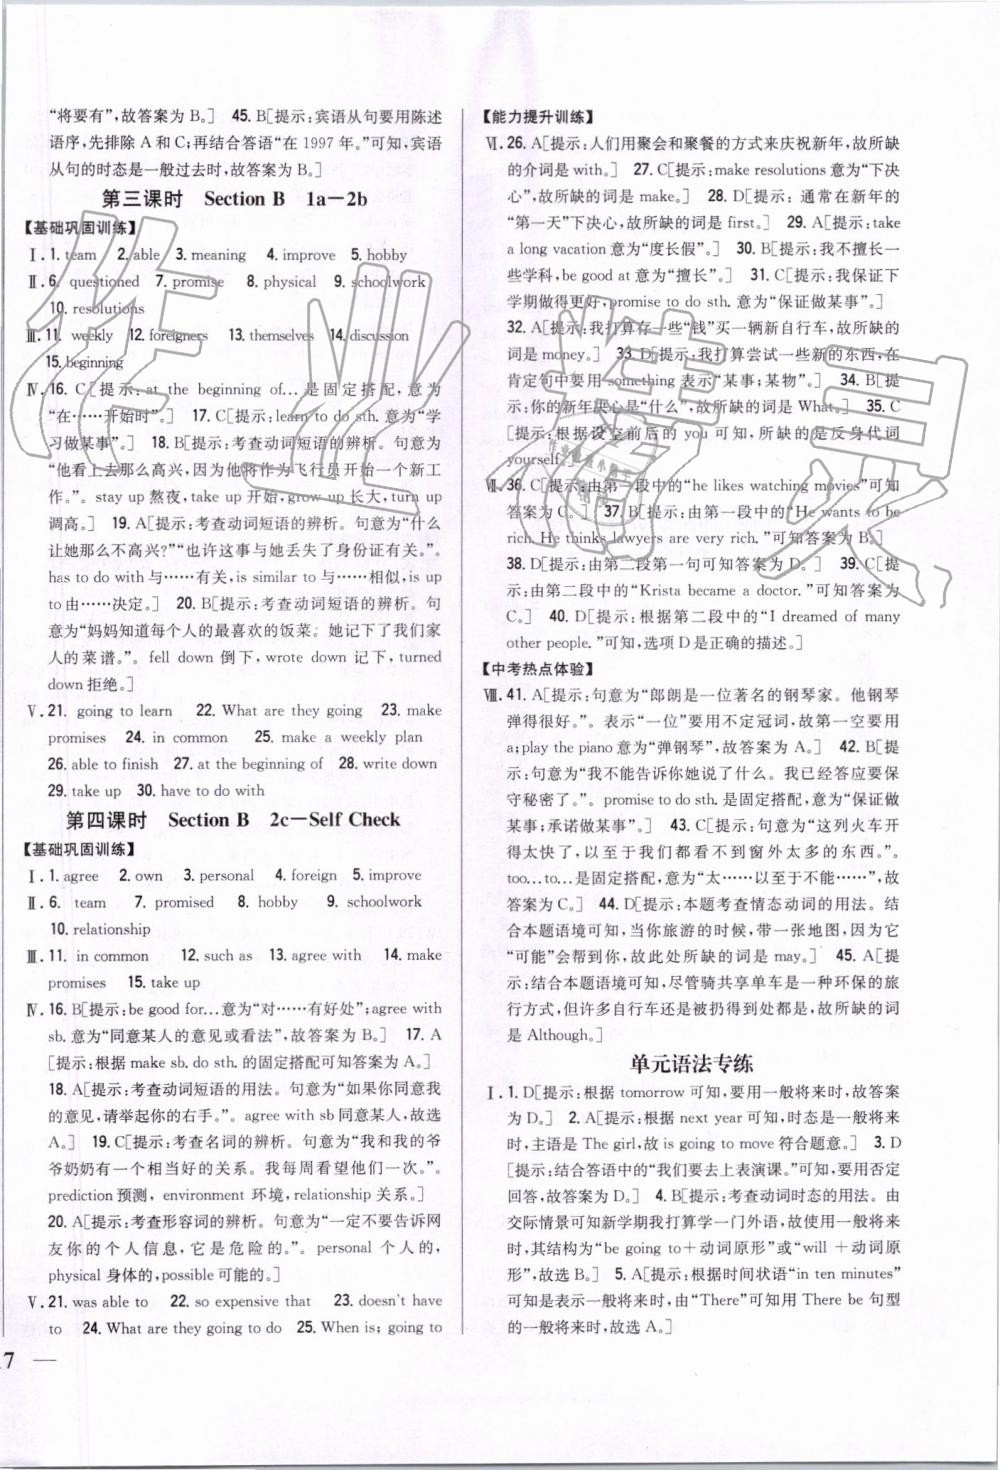 “将要有”,故答案为 B。] 45. B[提示:宾语从句要用陈述
语序,先排除 A 和 C;再结合答语“在 1997 年。”可知,宾
语从句的时态是一般过去时,故答案为 B。]
第三课时 Section B 1a—2b
【基础巩固训练】
Ⅰ. 1. team 2. able 3. meaning 4. improve 5. hobby
Ⅱ. 6. questioned 7. promise 8. physical 9. schoolwork
10. resolutions
Ⅲ. 11. weekly 12. foreigners 13. themselves 14. discussion
15. beginning
Ⅳ. 16. C[提示:at the beginning of…是固定搭配,意为
“在……开始时”。] 17. C[提示:learn to do sth. 意为“学
习做某事”。] 18. B[提示:考查动词短语的辨析。句意为
“他看上去那么高兴,因为他将作为飞行员开始一个新工
作。”。stay up 熬夜,take up 开始,grow up 长大,turn up
调高。] 19. A[提示:考查动词短语的辨析。句意为“什么
让她那么不高兴?”“也许这事与她丢失了身份证有关。”。
has to do with 与……有关,is similar to 与……相似,is up
to 由……决定。] 20. B[提示:考查动词短语的辨析。句
意为“妈妈知道每个人的最喜欢的饭菜。她记下了我们家
人的菜谱。”。fell down 倒下,wrote down 记下,turned
down 拒绝。]
Ⅴ. 21. going to learn 22. What are they going 23. make
promises 24. in common 25. make a weekly plan
26. able to finish 27. at the beginning of 28. write down
29. take up 30. have to do with
第四课时 Section B 2c—Self Check
【基础巩固训练】
Ⅰ. 1. agree 2. own 3. personal 4. foreign 5. improve
Ⅱ. 6. team 7. promised 8. hobby 9. schoolwork
10. relationship
Ⅲ. 11. in common 12. such as 13. agree with 14. make
promises 15. take up
Ⅳ. 16. B[提示:be good for…意为“对……有好处”;agree with
sb. 意为“同意某人的意见或看法”,故答案为 B。] 17. A
[提示:根据 make sb. do sth. 的固定搭配可知答案为 A。]
18. A[提示:考查动词短语的用法。句意为“如果你同意我
的意见,请举起你的右手。”。agree with sb 同意某人,故选
A。] 19. C[提示:考查名词的辨析。句意为“我和我的爷
爷奶奶有一个相当好的关系。我每周看望他们一次。”。
prediction 预测,environment 环境,relationship 关系。]
20. A[提示:考查形容词的辨析。句意为“一定不要告诉网
友你的个人信息,它是危险的。”。personal 个人的,
physical 身体的,possible 可能的。]
Ⅴ. 21. was able to 22. so expensive that 23. doesn't have
to 24. What are they going to do 25. When is; going to
17 —
【能力提升训练】
Ⅵ. 26. A[提示:人们用聚会和聚餐的方式来庆祝新年,故所缺
的介词是 with。] 27. C[提示:make resolutions 意为“下决
心”,故所缺的词是 make。] 28. D[提示:通常在新年的
“第一天”下决心,故所缺的词是 first。] 29. A[提示:take
a long vacation 意为“度长假”。] 30. B[提示:我不擅长一
些学科,be good at 意为“擅长”。] 31. C[提示:我保证下
学期做得更好,promise to do sth. 意为“保证做某事”。]
32. A[提示:我打算存一些“钱”买一辆新自行车,故所缺的
词是 money。] 33. D[提示:我打算尝试一些新的东西,在
肯定句中要用 something 表示“某事;某物”。] 34. B[提
示:你的新年决心是“什么”,故所缺的词是 What。] 35. C
[提示:根据设空前后的 you 可知,所缺的是反身代词
yourself。]
Ⅶ. 36. C[提示:由第一段中的“he likes watching movies”可知
答案为 C。] 37. B[提示:由第一段中的“He wants to be
rich. He thinks lawyers are very rich. ”可知答案为 B。]
38. D[提示:由第二段第一句可知答案为 D。] 39. C[提
示:由第二段中的“Krista became a doctor. ”可知答案为
C。] 40. D[提示:根据第二段中的“I dreamed of many
other people. ”可知,选项 D 是正确的描述。]
【中考热点体验】
Ⅷ. 41. A[提示:句意为“郎朗是一位著名的钢琴家。他钢琴
弹得很好。”。表示“一位”要用不定冠词,故第一空要用
a;play the piano 意为“弹钢琴”,故答案为 A。] 42. B[提
示:句意为“我不能告诉你她说了什么。我已经答应要保
守秘密了。”。promise to do sth. 是固定搭配,意为“保证做
某事;承诺做某事”。] 43. C[提示:句意为“这列火车开
得太快了,以至于我们都看不到窗外太多的东西。”。
too…to…是固定搭配,意为“太……以至于不能……”,故
答案为 C。] 44. D[提示:本题考查情态动词的用法。结
合本题语境可知,当你旅游的时候,带一张地图,没准它
“可能”会帮到你,故此处所缺的词是 may。] 45. A[提
示:结合本题语境可知,尽管骑共享单车是一种环保的旅
行方式,但许多自行车还是被扔得到处都是,故所缺的词
是 Although。]
单元语法专练
Ⅰ. 1. D[提示:根据 tomorrow 可知,要用一般将来时,故答案
为 D。] 2. A[提示:根据 next year 可知,时态是一般将来
时,主语是 The girl,故 is going to move 符合题意。] 3. D
[提示:结合答语中的“我们要去上表演课。”可知,要用否定
回答,故答案为 D。] 4. B[提示:考查动词时态的用法。由
交际情景可知新学期我打算学一门外语,故使用一般将来
时,其结构为“be going to＋动词原形”或“will ＋动词原
形”,故选 B。] 5. A[提示:根据时间状语“in ten minutes”
可知是表示一般将来时,由“There”可知用 There be 句型
的一般将来时,故选 A。]
作业精灵